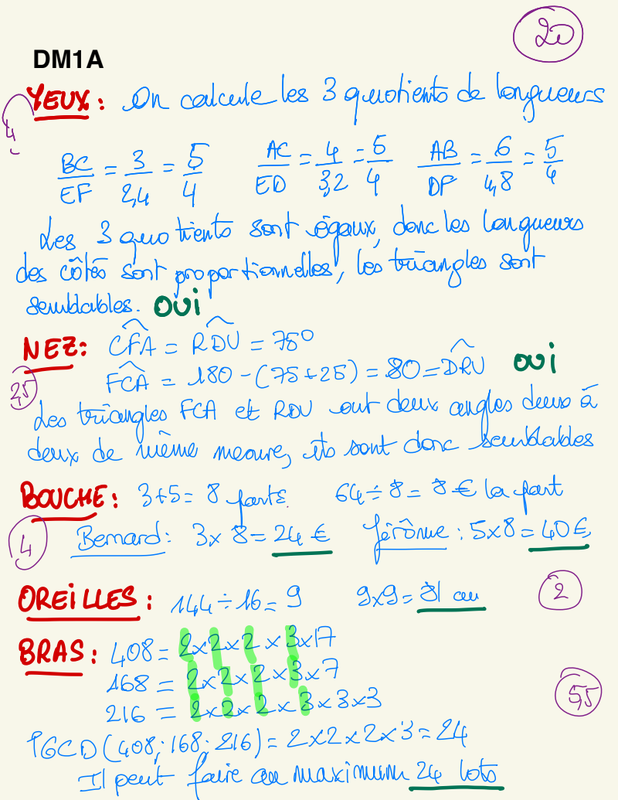 20
DM1A
4 YEUX : On calcule les 3 quotients de longueurs
BC/EF = 3/2,4 = 5/4 AC/ED = 4/3,2 = 5/4 AB/DF = 6/4,8 = 5/4
Les 3 quotients sont égaux, donc les longueurs
des côtés sont proportionnelles, les triangles sont
semblables. OUI
NEZ: CFA = RDU = 75°
2,5 FCA = 180 - (75+25) = 80 = DRU OUI
Les triangles FCA et RDU ont deux angles deux à
deux de même mesure, ils sont donc semblables
BOUCHE: 3+5= 8 parts. 64÷8= 8 € la part
4 Bernard: 3×8= 24 € Jérôme : 5×8 = 40 €
OREILLES : 144÷16= 9 9×9= 81 cm 2
BRAS: 408= 2×2×2×3×17
168 = 2×2×2×3×7
216 = 2×2×2×3×3×3 5,5
PGCD(408;168;216) = 2×2×2×3 = 24
Il peut faire au maximum 24 lots